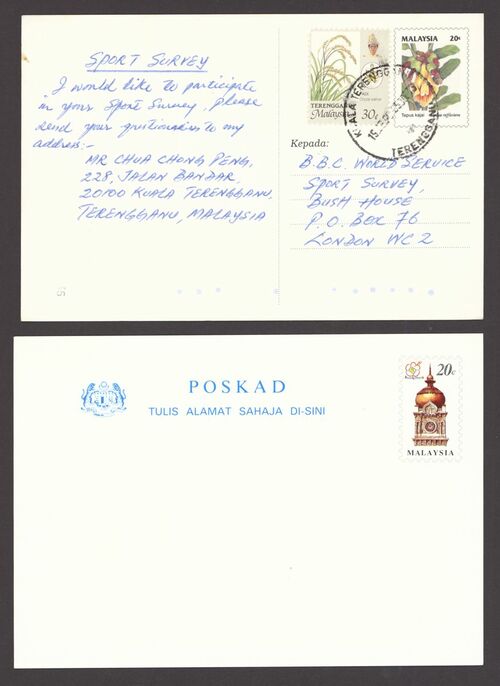 SPORT SURVEY
I would like to participate
in your Sport Survey, please
send your questionaires to my
address:-
MR CHUA CHONG PENG,
228, JALAN BANDAR,
20100 KUALA TERENGGANU,
TERENGGANU, MALAYSIA
TERENGGANU
Malaysia 30c
MALAYSIA 20c
KUALA TERENGGANU
TERENGGANU
Kepada:
B.B.C. WORLD SERVICE
SPORT SURVEY,
BUSH HOUSE
P.O. BOX 76
LONDON WC2
POSKAD
TULIS ALAMAT SAHAJA DI-SINI
20c
MALAYSIA